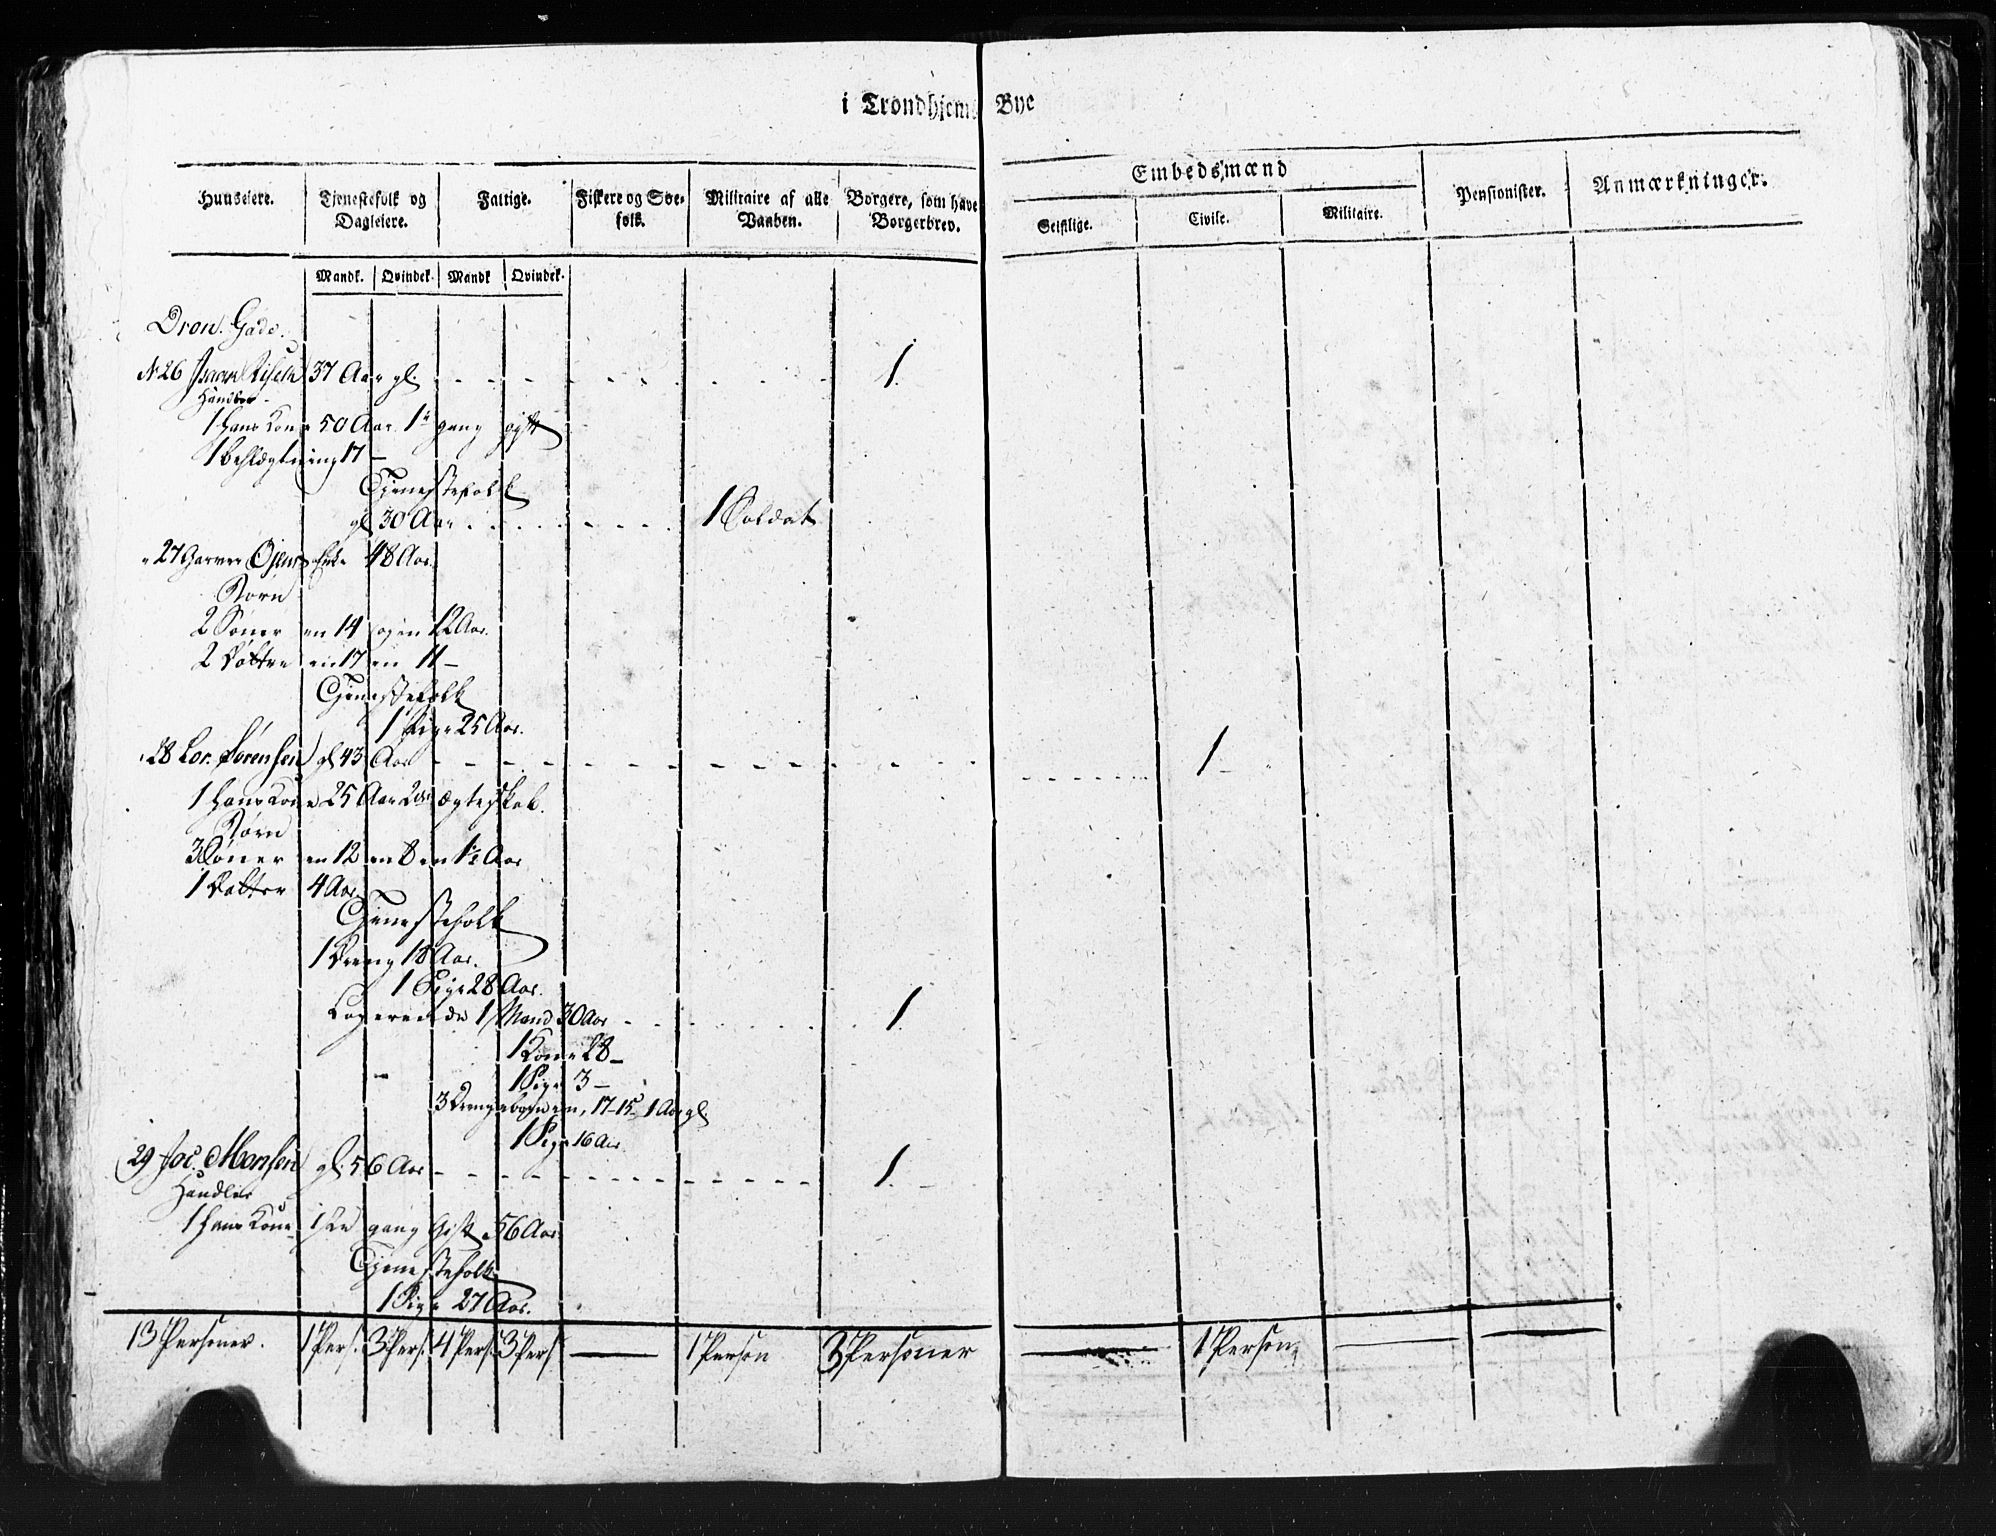 i Trondhjems Bye
Huuseiere. Tjenestefolk og Dagleiere. Fattige. Fiskere og Søefolk. Militaire af alle Vaaben. Borgere, som have Borgerbrev. Embedsmænd Pensionister. Anmærkninger.
Geistlige. Civile. Militaire.
Mandk. Qvindek. Mandk Qvindek.
Dron. Gade.
N 26 Isaac 37 Aar gl. 1.
Handler
1 Hans Kone 50 Aar 1te gang gift
1 Beslægtning 17 –
Tjenestefolk
gl 30 Aar 1 Soldat
" 27 Garver Enke 48 Aar.
Børn
2 Sønner en 14 og en 12 Aar.
2 Døttre en 17 en 11 –
Tjenestefolk
1 Pige 25 Aar.
" 28 Lor. Sørensen gl 43 Aar 1
1 Hans Kone 25 Aar 2det ægteskab.
Børn
3 Sønner en 12 en 8 en 1½ Aar
1 Datter 4 Aar
Tjenestefolk
1 Dreng 18 Aar.
1 Pige 28 Aar.
Logerende 1 Mand 30 Aar 1.
1 Kone 28 –
1 Pige 3 –
3 Drengebørn en, 17 – 15 – 1 Aar gl
1 Pige 16 Aar
29 Joc. Monsen gl. 56 Aar 1.
Handler
1 Hans Kone 1te gang Gift 56 Aar.
Tjenestefolk
1 Pige 27 Aar.
13 Personer. 1 Pers. 3 Pers. 4 Pers. 3 Pers 1 Person 3 Personer 1 Person